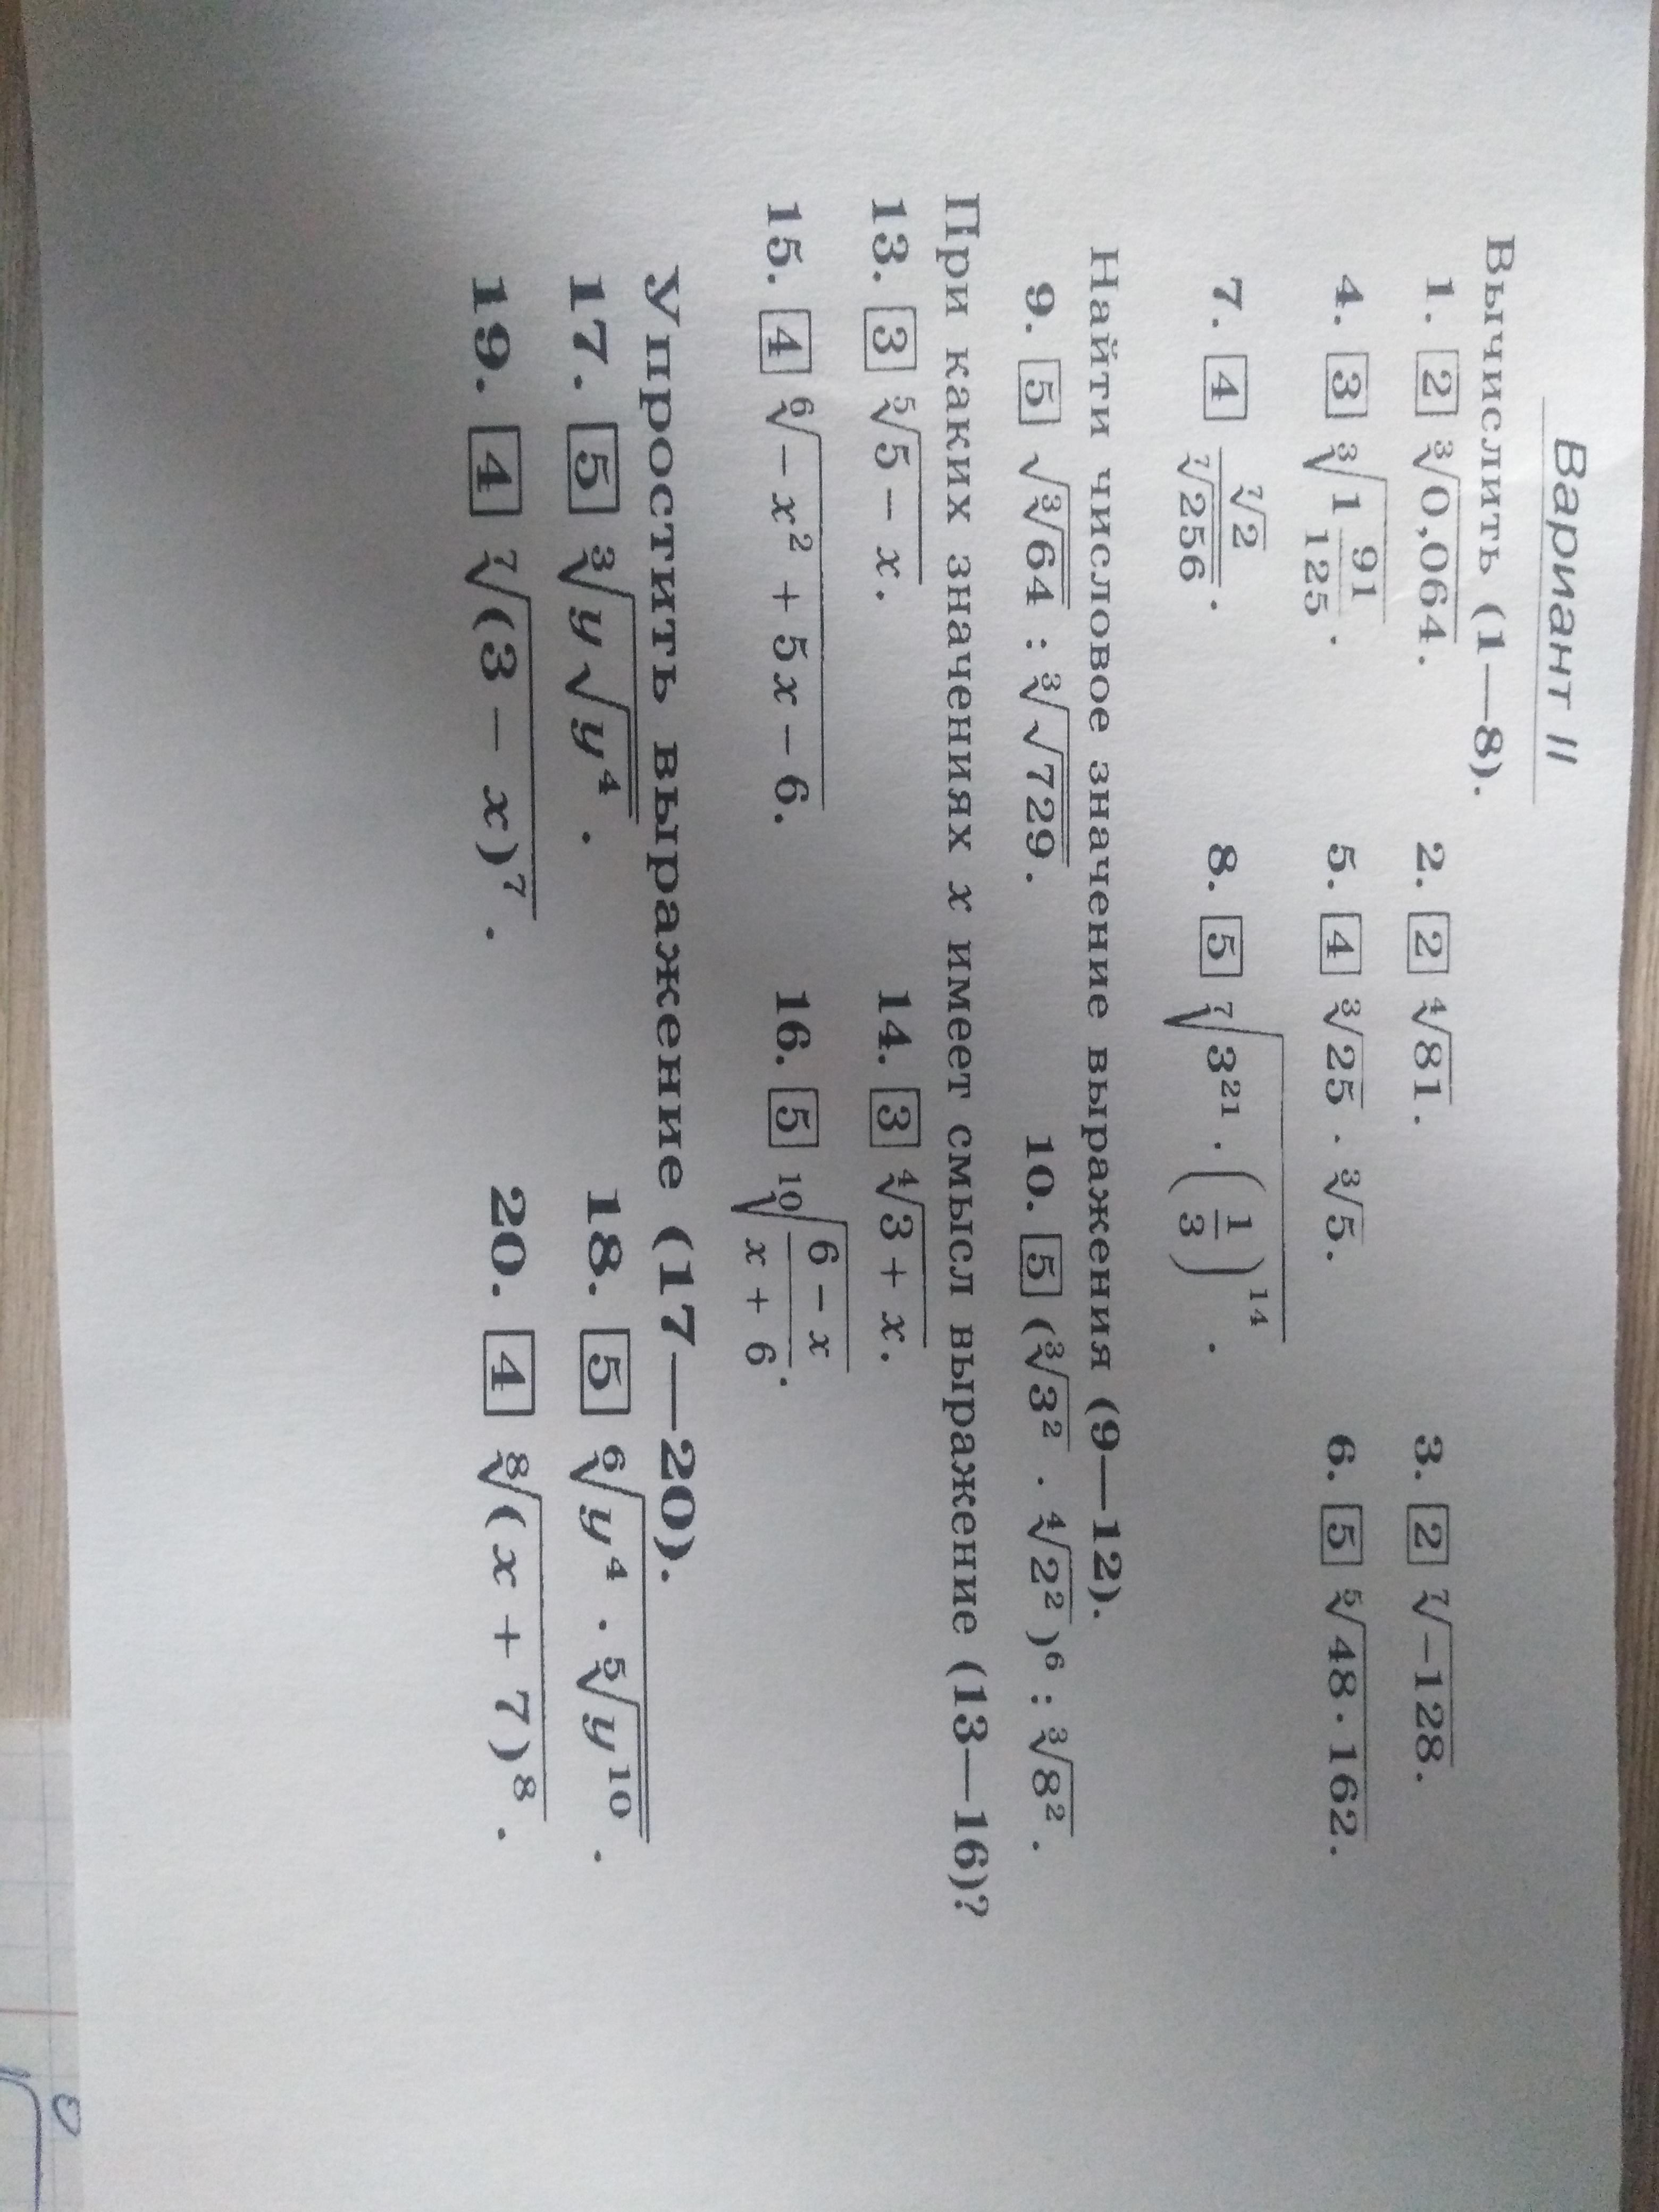 Вариант II
Вычислить (1—8).
1. [2] ∛0,064. 2. [2] ∜81. 3. [2] ⁷√−128.
4. [3] ∛(1 91/125). 5. [4] ∛25 · ∛5. 6. [5] ⁵√(48 · 162).
7. [4] ⁷√2 / ⁷√256. 8. [5] ⁷√(3²¹ · (1/3)¹⁴).
Найти числовое значение выражения (9—12).
9. [5] √(∛64) : ∛(√729). 10. [5] (∛3² · ∜2²)⁶ : ∛8².
При каких значениях x имеет смысл выражение (13—16)?
13. [3] ⁵√(5 − x). 14. [3] ∜(3 + x).
15. [4] ⁶√(−x² + 5x − 6). 16. [5] ¹⁰√((6 − x)/(x + 6)).
Упростить выражение (17—20).
17. [5] ∛(y√y⁴). 18. [5] ⁶√(y⁴ · ⁵√y¹⁰).
19. [4] ⁷√(3 − x)⁷. 20. [4] ⁸√(x + 7)⁸.